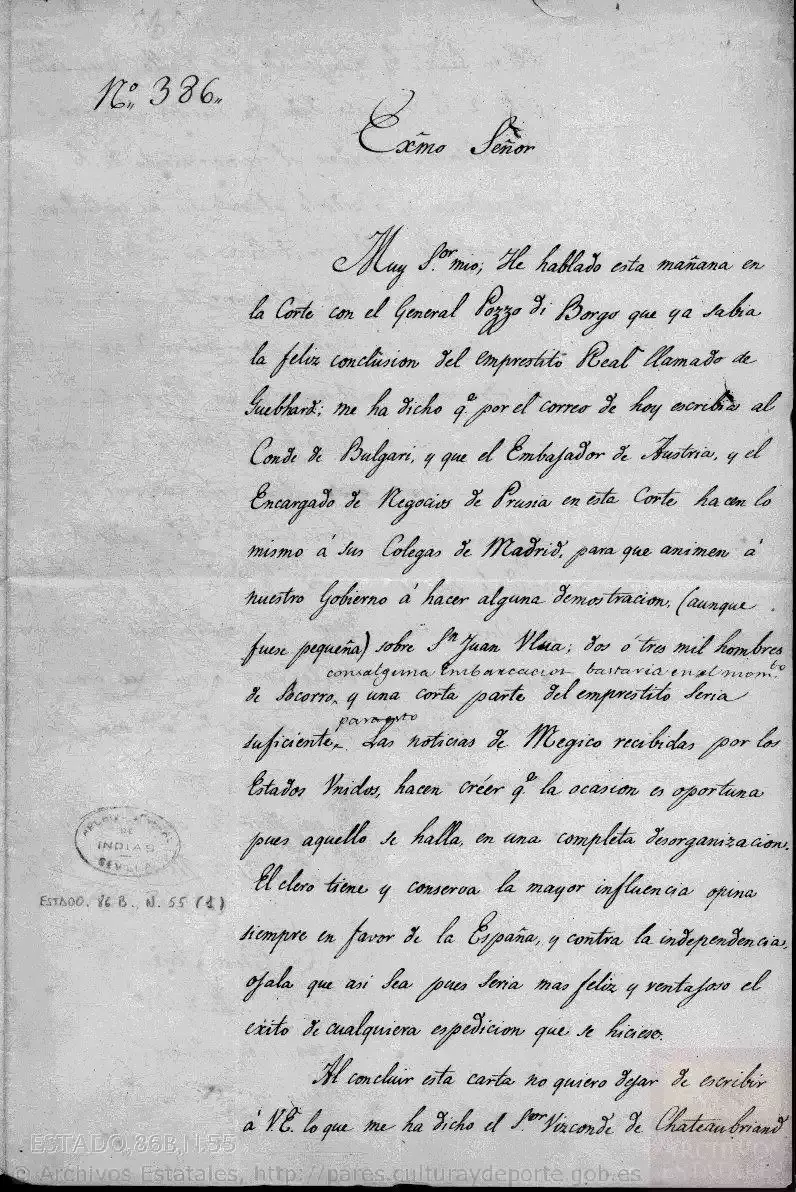 Nº 386.
Exmo Señor
Muy Sor. mio; He hablado esta mañana en
la Corte con el General Pozzo di Borgo que ya sabia
la feliz conclusion del emprestito Real llamado de
Guebhard; me ha dicho qe. por el correo de hoy escribia al
Conde de Bulgari, y que el Embajador de Austria, y el
Encargado de Negocios de Prusia en esta Corte hacen lo
mismo á sus Colegas de Madrid, para que animen á
nuestro Gobierno á hacer alguna demostracion, (aunque
fuese pequeña) sobre Sn. Juan Ulua; dos ó tres mil hombres
con alguna embarcacion bastaria en el momto.
de Socorro, y una corta parte del emprestito seria
para esto
suficiente. Las noticias de Megico recibidas por los
Estados Vnidos, hacen créer qe. la ocasion es oportuna
pues aquello se halla, en una completa desorganizacion.
El clero tiene y conserva la mayor influencia opina
siempre en favor de la España, y contra la independencia,
ojala que asi sea pues seria mas feliz y ventajoso el
exito de cualquiera espedicion que se hiciese.
Al concluir esta carta no quiero dejar de escribir
á V.E. lo que me ha dicho el Sor. Vizconde de Chateaubriand
DE
INDIAS
SEVILLA
ESTADO. 86 B., N. 55 (1)
ESTADO,86B,N.55
© Archivos Estatales, http://pares.culturaydeporte.gob.es